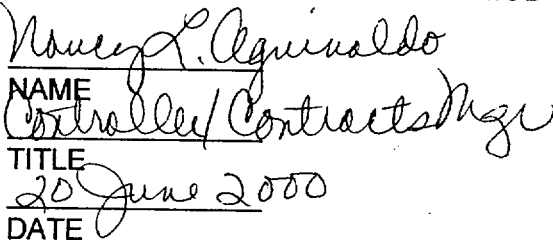 Nancy L. Aguinaldo
NAME
Controller/Contracts Mgr
TITLE
20 June 2000
DATE